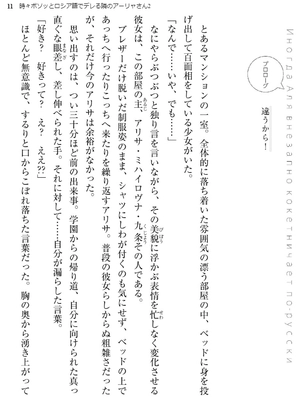 11 時々ボソッとロシア語でデレる隣のアーリャさん2
Иногда Аля внезапно кокетничает по-русски
プロローグ
違うから!
とあるマンションの一室。全体的に落ち着いた雰囲気の漂う部屋の中、ベッドに身を投
げ出して百面相をしている少女がいた。
「なんで……いや、でも……」
なにやらぶつぶつと独り言を言いながら、その美貌に浮かぶ表情を忙しなく変化させる
彼女は、この部屋の主、アリサ・ミハイロヴナ・九条その人である。
ブレザーだけ脱いだ制服姿のまま、シャツにしわが付くのも気にせず、ベッドの上で
あっちへ行ったりこっちへ来たりを繰り返すアリサ。普段の彼女らしからぬ粗雑さだった
が、それだけ今のアリサは余裕がなかった。
思い出すのは、つい三十分ほど前の出来事。学園からの帰り道、自分に向けられた真っ
直ぐな眼差し、差し伸べられた手。それに対して……自分が漏らした言葉。
「好き? 好きって? え? ええ??」
ほとんど無意識で、するりと口からこぼれ落ちた言葉だった。胸の奥から湧き上がって